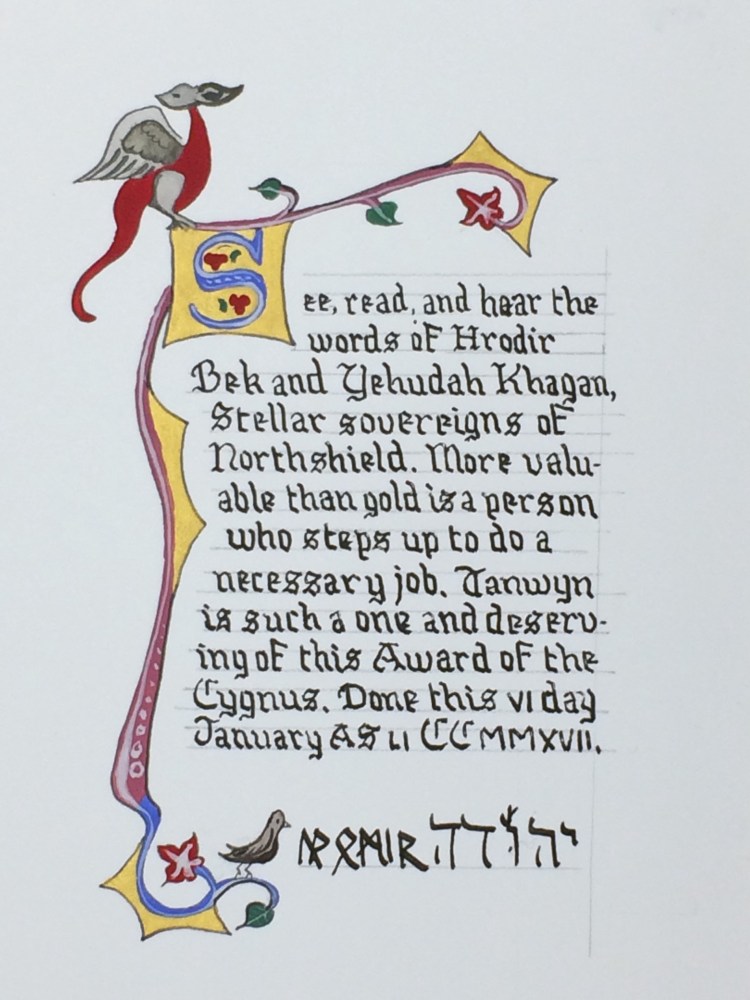 See, read, and hear the
words of Hrodir
Bek and Yehudah Khagan,
Stellar sovereigns of
Northshield. More valu-
able than gold is a person
who steps up to do a
necessary job. Tanwyn
is such a one and deserv-
ing of this Award of the
Cygnus. Done this vi day
January AS LI CC MMXVII.
יהודה